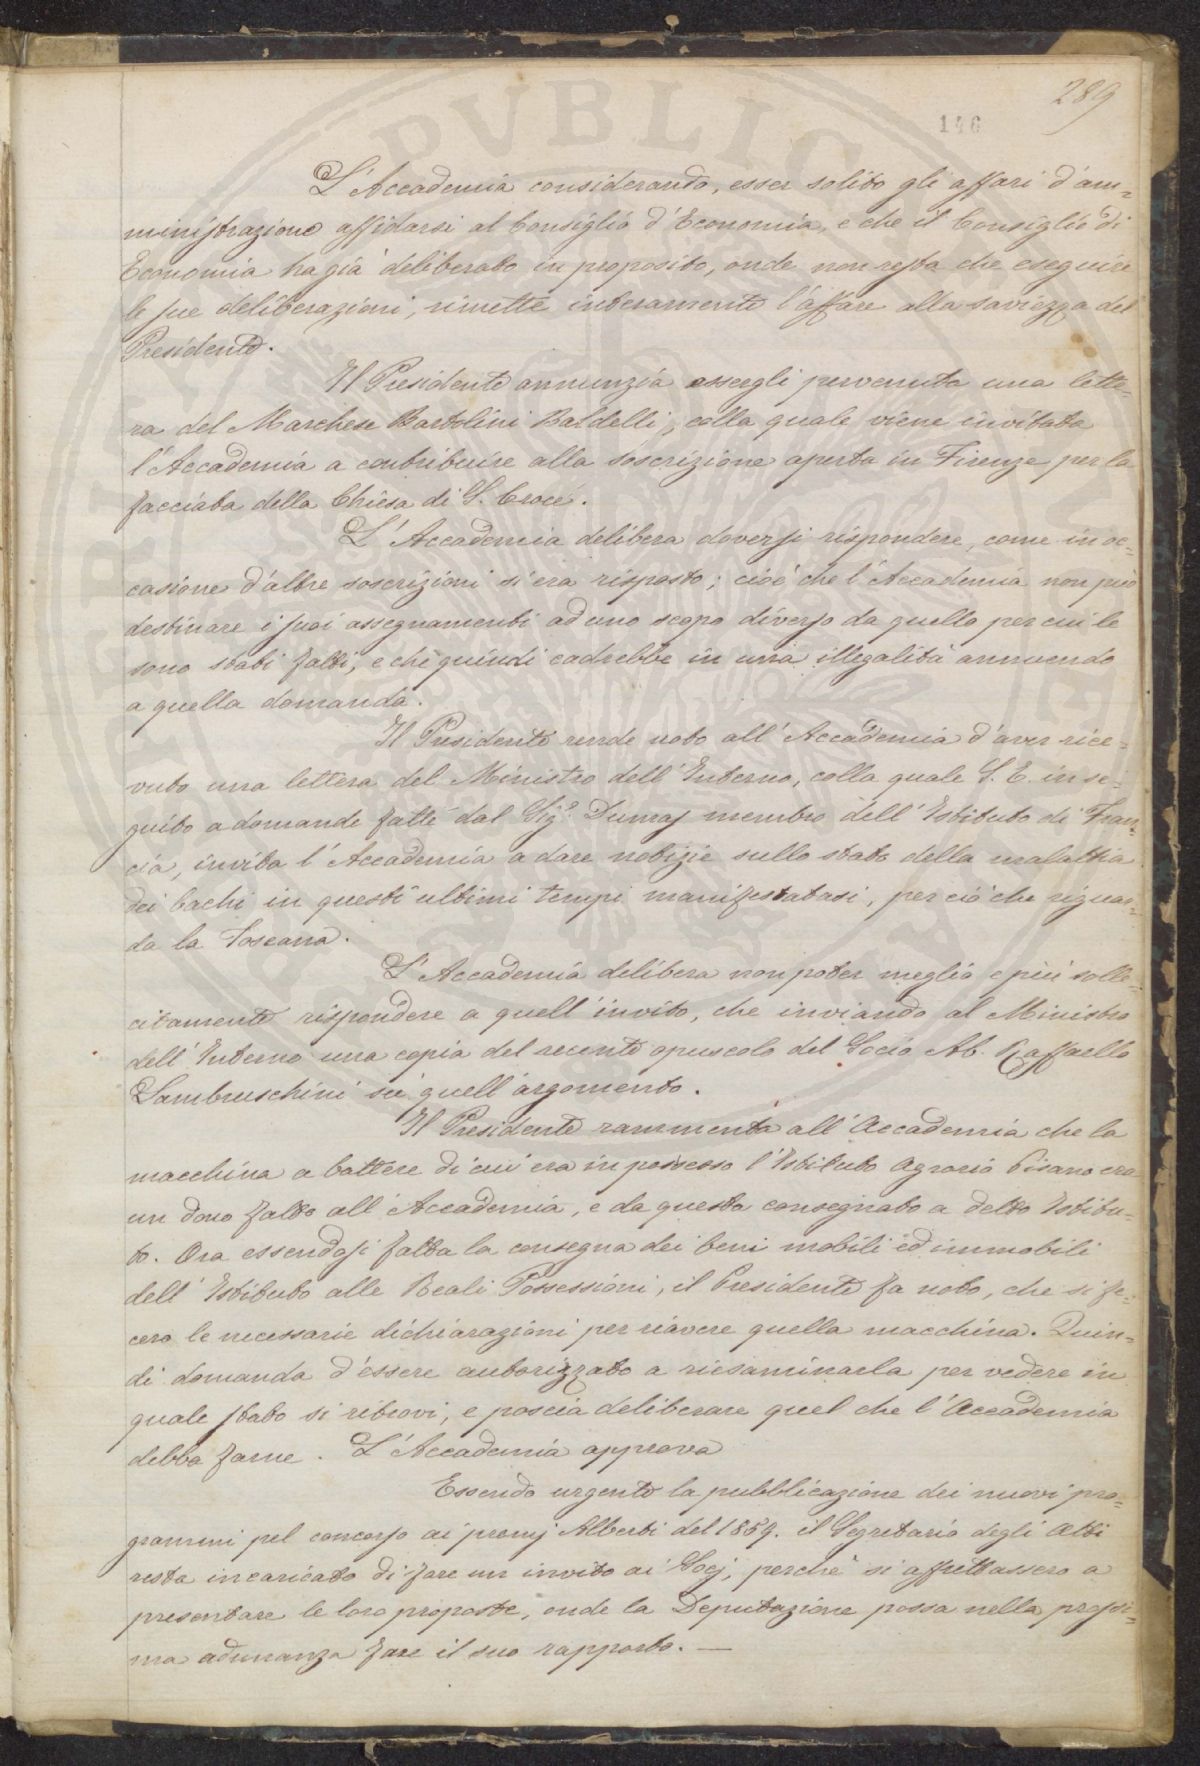 289
146
L'Accademia considerando, esser solito gli affari d'am=
ministrazione affidarsi al Consiglio d'Economia, e che il Consiglio di
Economia ha già deliberato in proposito, onde non resta che eseguire
le sue deliberazioni, rimette interamente l'affare alla saviezza del
Presidente.
Il Presidente annunzia essergli pervenuta una lette=
ra del Marchese Bartolini Baldelli, colla quale viene invitata
l'Accademia a contribuire alla soscrizione aperta in Firenze per la
facciata della Chiesa di S. Croce.
L'Accademia delibera doversi rispondere, come in oc=
casione d'altre soscrizioni si era risposto; cioè che l'Accademia non può
destinare i suoi assegnamenti ad uno scopo diverso da quello per cui le
sono stati fatti, e che quindi cadrebbe in una illegalità annuendo
a quella domanda.
Il Presidente rende noto all'Accademia d'aver rice=
vuto una lettera del Ministro dell'Interno, colla quale S. E. in se=
guito a domande fatte dal Sigr. Dumas membro dell'Istituto di Fran=
cia, invita l'Accademia a dare notizie sullo stato della malattia
dei bachi in questi ultimi tempi manifestatasi, per ciò che riguar=
da la Toscana.
L'Accademia delibera non poter meglio e più solle=
citamente rispondere a quell'invito, che inviando al Ministro
dell'Interno una copia del recente opuscolo del Socio Ab. Raffaello
Lambruschini su quell'argomento.
Il Presidente rammenta all'Accademia che la
macchina a battere di cui era in possesso l'Istituto Agrario Pisano era
un dono fatto all'Accademia, e da questa consegnato a detto Istitu=
to. Ora essendosi fatta la consegna dei beni mobili ed immobili
dell'Istituto alle Reali Possessioni, il Presidente fa noto, che si fe=
cero le necessarie dichiarazioni per riavere quella macchina. Quin=
di domanda d'essere autorizzato a riesaminarla per vedere in
quale stato si ritrovi, e poscia deliberare quel che l'Accademia
debba farne. L'Accademia approva
Essendo urgente la pubblicazione dei nuovi pro=
grammi pel concorso ai premj Alberti del 1859. il Segretario degli Atti
resta incaricato di fare un invito ai Socj, perchè si affrettassero a
presentare le loro proposte, onde la Deputazione possa nella prossi=
ma adunanza fare il suo rapporto. —